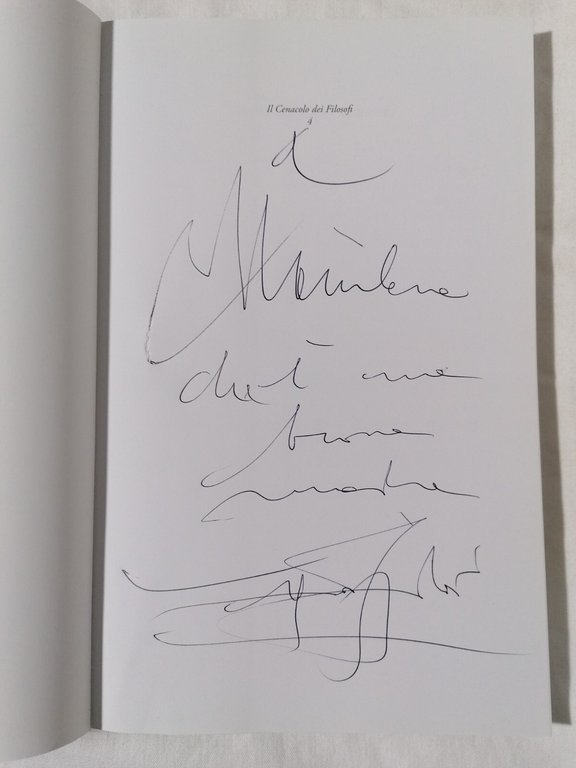 Il Cenacolo dei Filosofi
4
a
Marilena
che è una
buona
madre